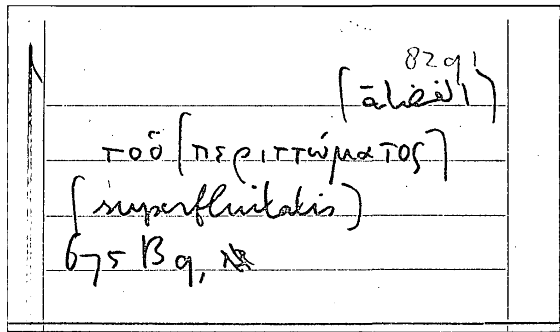 82 q 1
τοῦ (περιττώματος)
(superfluitatis)
675 B 9,